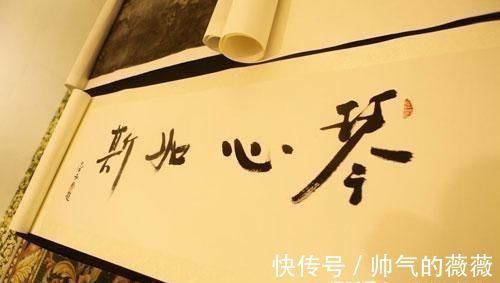 琴心如斯
快传号/帅气的薇薇